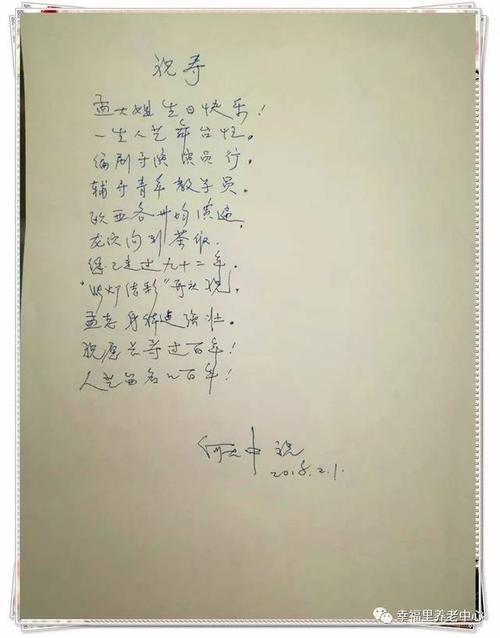 祝寿
孟大姐生日快乐！
一生人艺舞台忙。
编剧导演演员行。
辅导青年教学员。
欧亚各州均演遍。
龙沟到茶馆。
走过九十二年。
"灯结彩"再次祝。
孟老身体健强壮。
祝愿长寿过百年！
人艺留名百年！
何 中 祝
2018.2.1.
幸福里养老中心